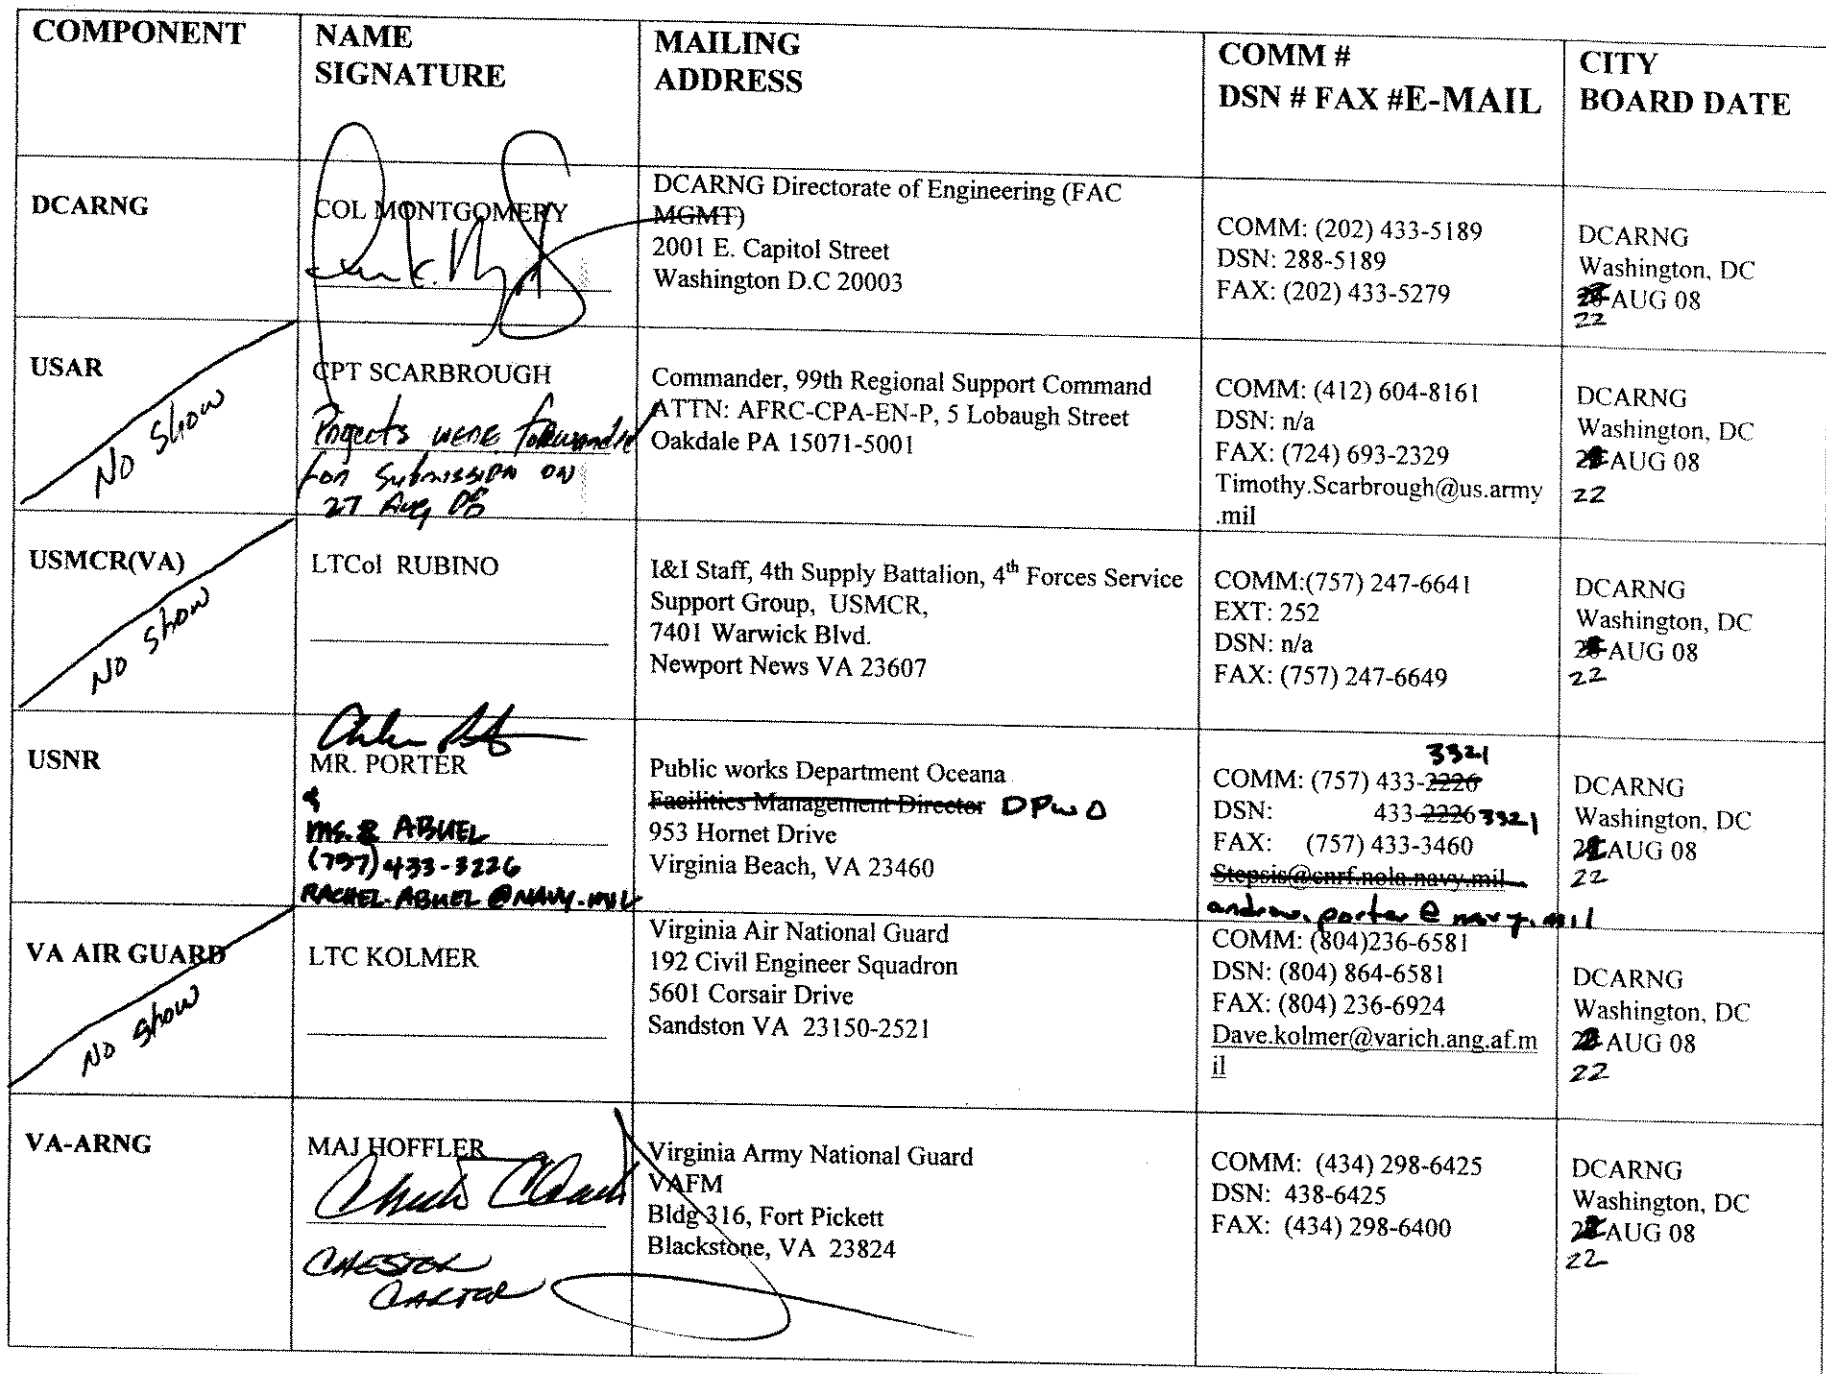 COMPONENT
NAME
SIGNATURE
MAILING
ADDRESS
COMM #
DSN # FAX #E-MAIL
CITY
BOARD DATE
DCARNG
COL MONTGOMERY
DCARNG Directorate of Engineering (FAC
MGMT)
2001 E. Capitol Street
Washington D.C 20003
COMM: (202) 433-5189
DSN: 288-5189
FAX: (202) 433-5279
DCARNG
Washington, DC
AUG 08
22
USAR
No Show
CPT SCARBROUGH
Projects were forwarded
for submission on
27 Aug 08
Commander, 99th Regional Support Command
ATTN: AFRC-CPA-EN-P, 5 Lobaugh Street
Oakdale PA 15071-5001
COMM: (412) 604-8161
DSN: n/a
FAX: (724) 693-2329
Timothy.Scarbrough@us.army
.mil
DCARNG
Washington, DC
AUG 08
22
USMCR(VA)
No Show
LTCol RUBINO
I&I Staff, 4th Supply Battalion, 4th Forces Service
Support Group, USMCR,
7401 Warwick Blvd.
Newport News VA 23607
COMM:(757) 247-6641
EXT: 252
DSN: n/a
FAX: (757) 247-6649
DCARNG
Washington, DC
AUG 08
22
USNR
MR. PORTER
&
MS. R ABUEL
(757) 433-3226
RACHEL.ABUEL@NAVY.MIL
Public works Department Oceana
Facilities Management Director DPWO
953 Hornet Drive
Virginia Beach, VA 23460
3321
COMM: (757) 433-2226
DSN: 433-2226 3321
FAX: (757) 433-3460
Stepsis@cnrf.nola.navy.mil
andrew.porter@navy.mil
DCARNG
Washington, DC
AUG 08
22
VA AIR GUARD
No Show
LTC KOLMER
Virginia Air National Guard
192 Civil Engineer Squadron
5601 Corsair Drive
Sandston VA 23150-2521
COMM: (804)236-6581
DSN: (804) 864-6581
FAX: (804) 236-6924
Dave.kolmer@varich.ang.af.m
il
DCARNG
Washington, DC
AUG 08
22
VA-ARNG
MAJ HOFFLER
CHESTER
CARTER
Virginia Army National Guard
VAFM
Bldg 316, Fort Pickett
Blackstone, VA 23824
COMM: (434) 298-6425
DSN: 438-6425
FAX: (434) 298-6400
DCARNG
Washington, DC
AUG 08
22